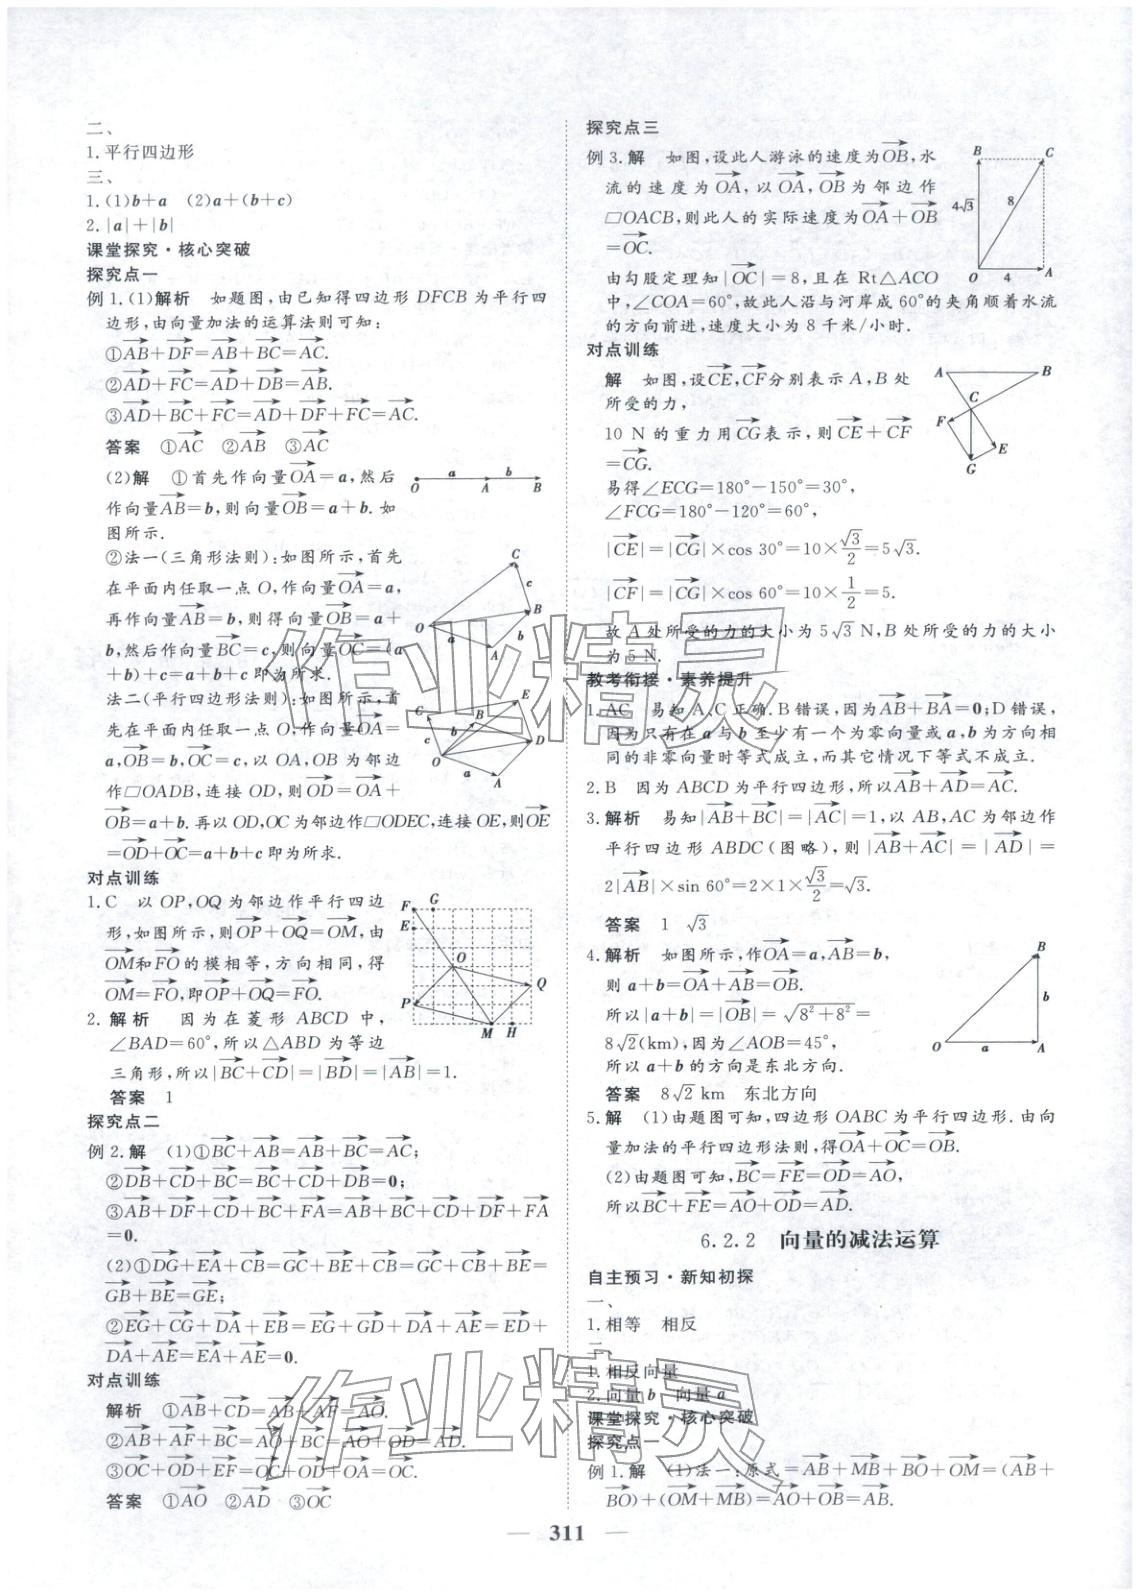 二、
1.平行四边形
三、
1.(1)b+a (2)a+(b+c)
2.|a|+|b|
课堂探究·核心突破
探究点一
例1.(1)解析 如题图,由已知得四边形 DFCB 为平行四
边形,由向量加法的运算法则可知:
①AB+DF=AB+BC=AC.
②AD+FC=AD+DB=AB.
③AD+BC+FC=AD+DF+FC=AC.
答案 ①AC ②AB ③AC
(2)解 ①首先作向量OA=a,然后
作向量AB=b,则向量OB=a+b.如
图所示.
O a A b B
②法一(三角形法则):如图所示,首先
在平面内任取一点 O,作向量OA=a,
再作向量AB=b,则得向量OB=a+
b,然后作向量BC=c,则向量OC=(a
+b)+c=a+b+c即为所求.
C c B O a b A
法二(平行四边形法则):如图所示,首
先在平面内任取一点 O,作向量OA=
a,OB=b,OC=c,以 OA,OB 为邻边
作□OADB,连接 OD,则OD=OA+
OB=a+b.再以 OD,OC 为邻边作□ODEC,连接 OE,则OE
=OD+OC=a+b+c即为所求.
E C B c b D O a A
对点训练
1.C 以 OP,OQ 为邻边作平行四边
形,如图所示,则OP+OQ=OM,由
OM和FO的模相等,方向相同,得
OM=FO,即OP+OQ=FO.
F G E O Q P M H
2.解析 因为在菱形 ABCD 中,
∠BAD=60°,所以△ABD 为等边
三角形,所以|BC+CD|=|BD|=|AB|=1.
答案 1
探究点二
例2.解 (1)①BC+AB=AB+BC=AC;
②DB+CD+BC=BC+CD+DB=0;
③AB+DF+CD+BC+FA=AB+BC+CD+DF+FA
=0.
(2)①DG+EA+CB=GC+BE+CB=GC+CB+BE=
GB+BE=GE;
②EG+CG+DA+EB=EG+GD+DA+AE=ED+
DA+AE=EA+AE=0.
对点训练
解析 ①AB+CD=AB+AF=AO.
②AB+AF+BC=AO+BC=AO+OD=AD.
③OC+OD+EF=OC+OD+OA=OC.
答案 ①AO ②AD ③OC
探究点三
例3.解 如图,设此人游泳的速度为OB,水
流的速度为OA,以OA,OB为邻边作
□OACB,则此人的实际速度为OA+OB
=OC.
B C 4√3 8 O 4 A
由勾股定理知|OC|=8,且在 Rt△ACO
中,∠COA=60°,故此人沿与河岸成 60°的夹角顺着水流
的方向前进,速度大小为 8 千米/小时.
对点训练
解 如图,设CE,CF分别表示 A,B 处
所受的力,
10 N 的重力用CG表示,则CE+CF
=CG.
A B C F E G
易得∠ECG=180°-150°=30°,
∠FCG=180°-120°=60°,
|CE|=|CG|×cos 30°=10×√3/2=5√3.
|CF|=|CG|×cos 60°=10×1/2=5.
故 A 处所受的力的大小为 5√3 N,B 处所受的力的大小
为 5 N.
教考衔接·素养提升
1.AC 易知 A、C 正确.B 错误,因为AB+BA=0;D 错误,
因为只有在 a 与 b 至少有一个为零向量或 a,b 为方向相
同的非零向量时等式成立,而其它情况下等式不成立.
2.B 因为 ABCD 为平行四边形,所以AB+AD=AC.
3.解析 易知|AB+BC|=|AC|=1,以 AB,AC 为邻边作
平行四边形 ABDC(图略),则|AB+AC|=|AD|=
2|AB|×sin 60°=2×1×√3/2=√3.
答案 1 √3
4.解析 如图所示,作OA=a,AB=b,
则 a+b=OA+AB=OB.
所以|a+b|=|OB|=√8²+8²=
8√2(km),因为∠AOB=45°,
所以 a+b 的方向是东北方向.
B b O a A
答案 8√2 km 东北方向
5.解 (1)由题图可知,四边形 OABC 为平行四边形.由向
量加法的平行四边形法则,得OA+OC=OB.
(2)由题图可知,BC=FE=OD=AO,
所以BC+FE=AO+OD=AD.
6.2.2 向量的减法运算
自主预习·新知初探
一、
1.相等 相反
二、
1.相反向量
2.向量 b 向量 a
课堂探究·核心突破
探究点一
例1.解 (1)法一:原式=AB+MB+BO+OM=(AB+
BO)+(OM+MB)=AO+OB=AB.
311
作业精灵
作业精灵